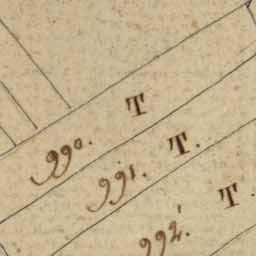 990. T
991. T.
992. T.